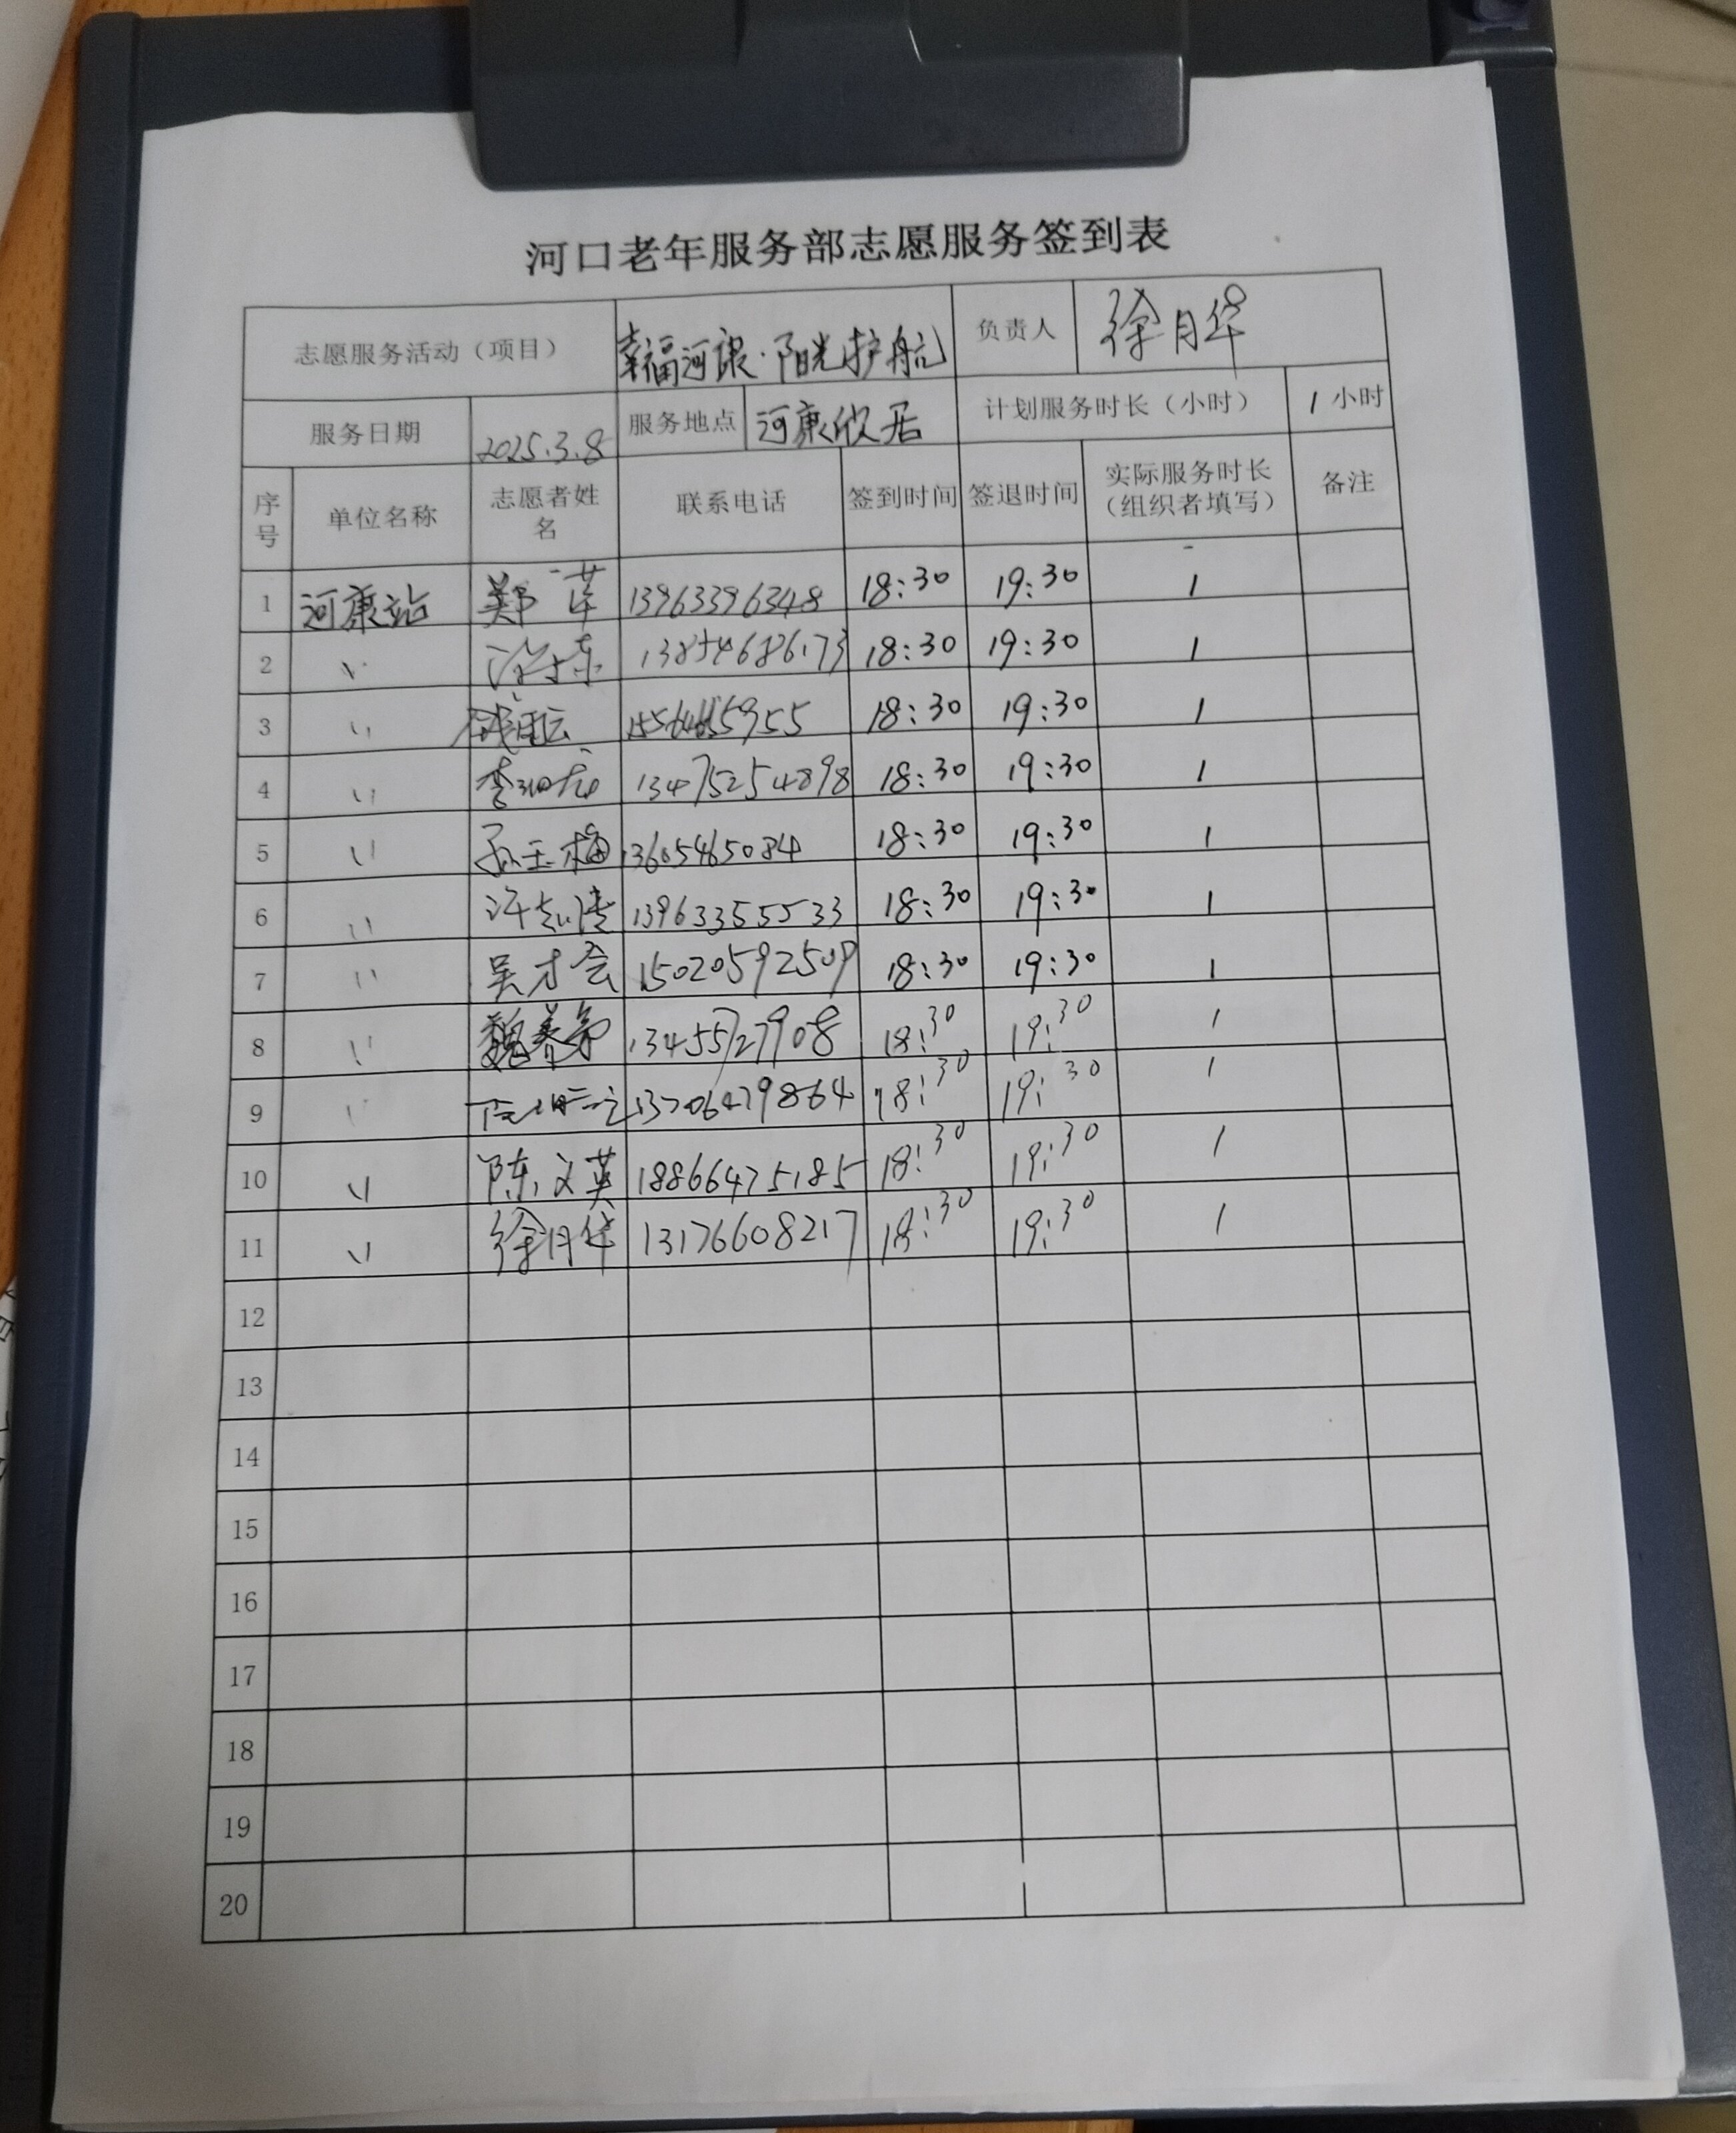 河口老年服务部志愿服务签到表
志愿服务活动（项目） 幸福河康·阳光护航 负责人 徐月华
服务日期 2025.3.8 服务地点 河康欣居 计划服务时长（小时） 1小时
序号 单位名称 志愿者姓名 联系电话 签到时间 签退时间 实际服务时长（组织者填写） 备注
1 河康站 郑萍 13963396348 18:30 19:30 1
2 〃 13854686173 18:30 19:30 1
3 〃 18:30 19:30 1
4 〃 13475254898 18:30 19:30 1
5 〃 孙玉梅 13605465084 18:30 19:30 1
6 〃 13963355533 18:30 19:30 1
7 〃 吴才会 15020592509 18:30 19:30 1
8 〃 13455727908 18:30 19:30 1
9 〃 13706479864 18:30 19:30 1
10 〃 陈文英 18866475185 18:30 19:30 1
11 〃 徐月华 13176608217 18:30 19:30 1
12
13
14
15
16
17
18
19
20